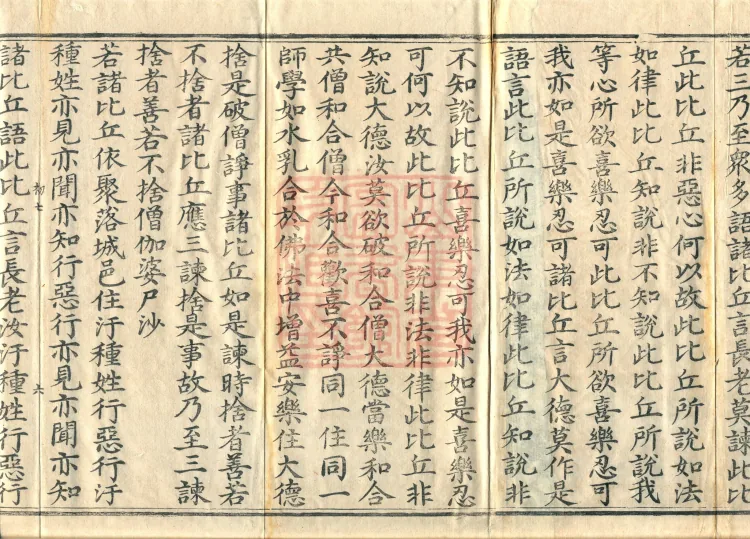 若三乃至衆多語諸比丘言長老莫諫此比
丘此比丘非惡心何以故此比丘所說如法
如律此比丘知說非不知說此比丘所說我
等心所欲喜樂忍可此比丘所欲喜樂忍可
我亦如是喜樂忍可諸比丘言大德莫作是
語言此比丘所說如法如律此比丘知說非
不知說此比丘喜樂忍可我亦如是喜樂忍
可何以故此比丘所說非法非律此比丘非
知說大德汝莫欲破和合僧大德當樂和合
共僧和合僧今和合歡喜不諍同一住同一
師學如水乳合於佛法中增益安樂住大德
捨是破僧諍事諸比丘如是諫時捨者善若
不捨者諸比丘應三諫捨是事故乃至三諫
捨者善若不捨僧伽婆尸沙
若諸比丘依聚落城邑住汙種姓行惡行汙
種姓亦見亦聞亦知行惡行亦見亦聞亦知
初七 六
諸比丘語此比丘言長老汝汙種姓行惡行